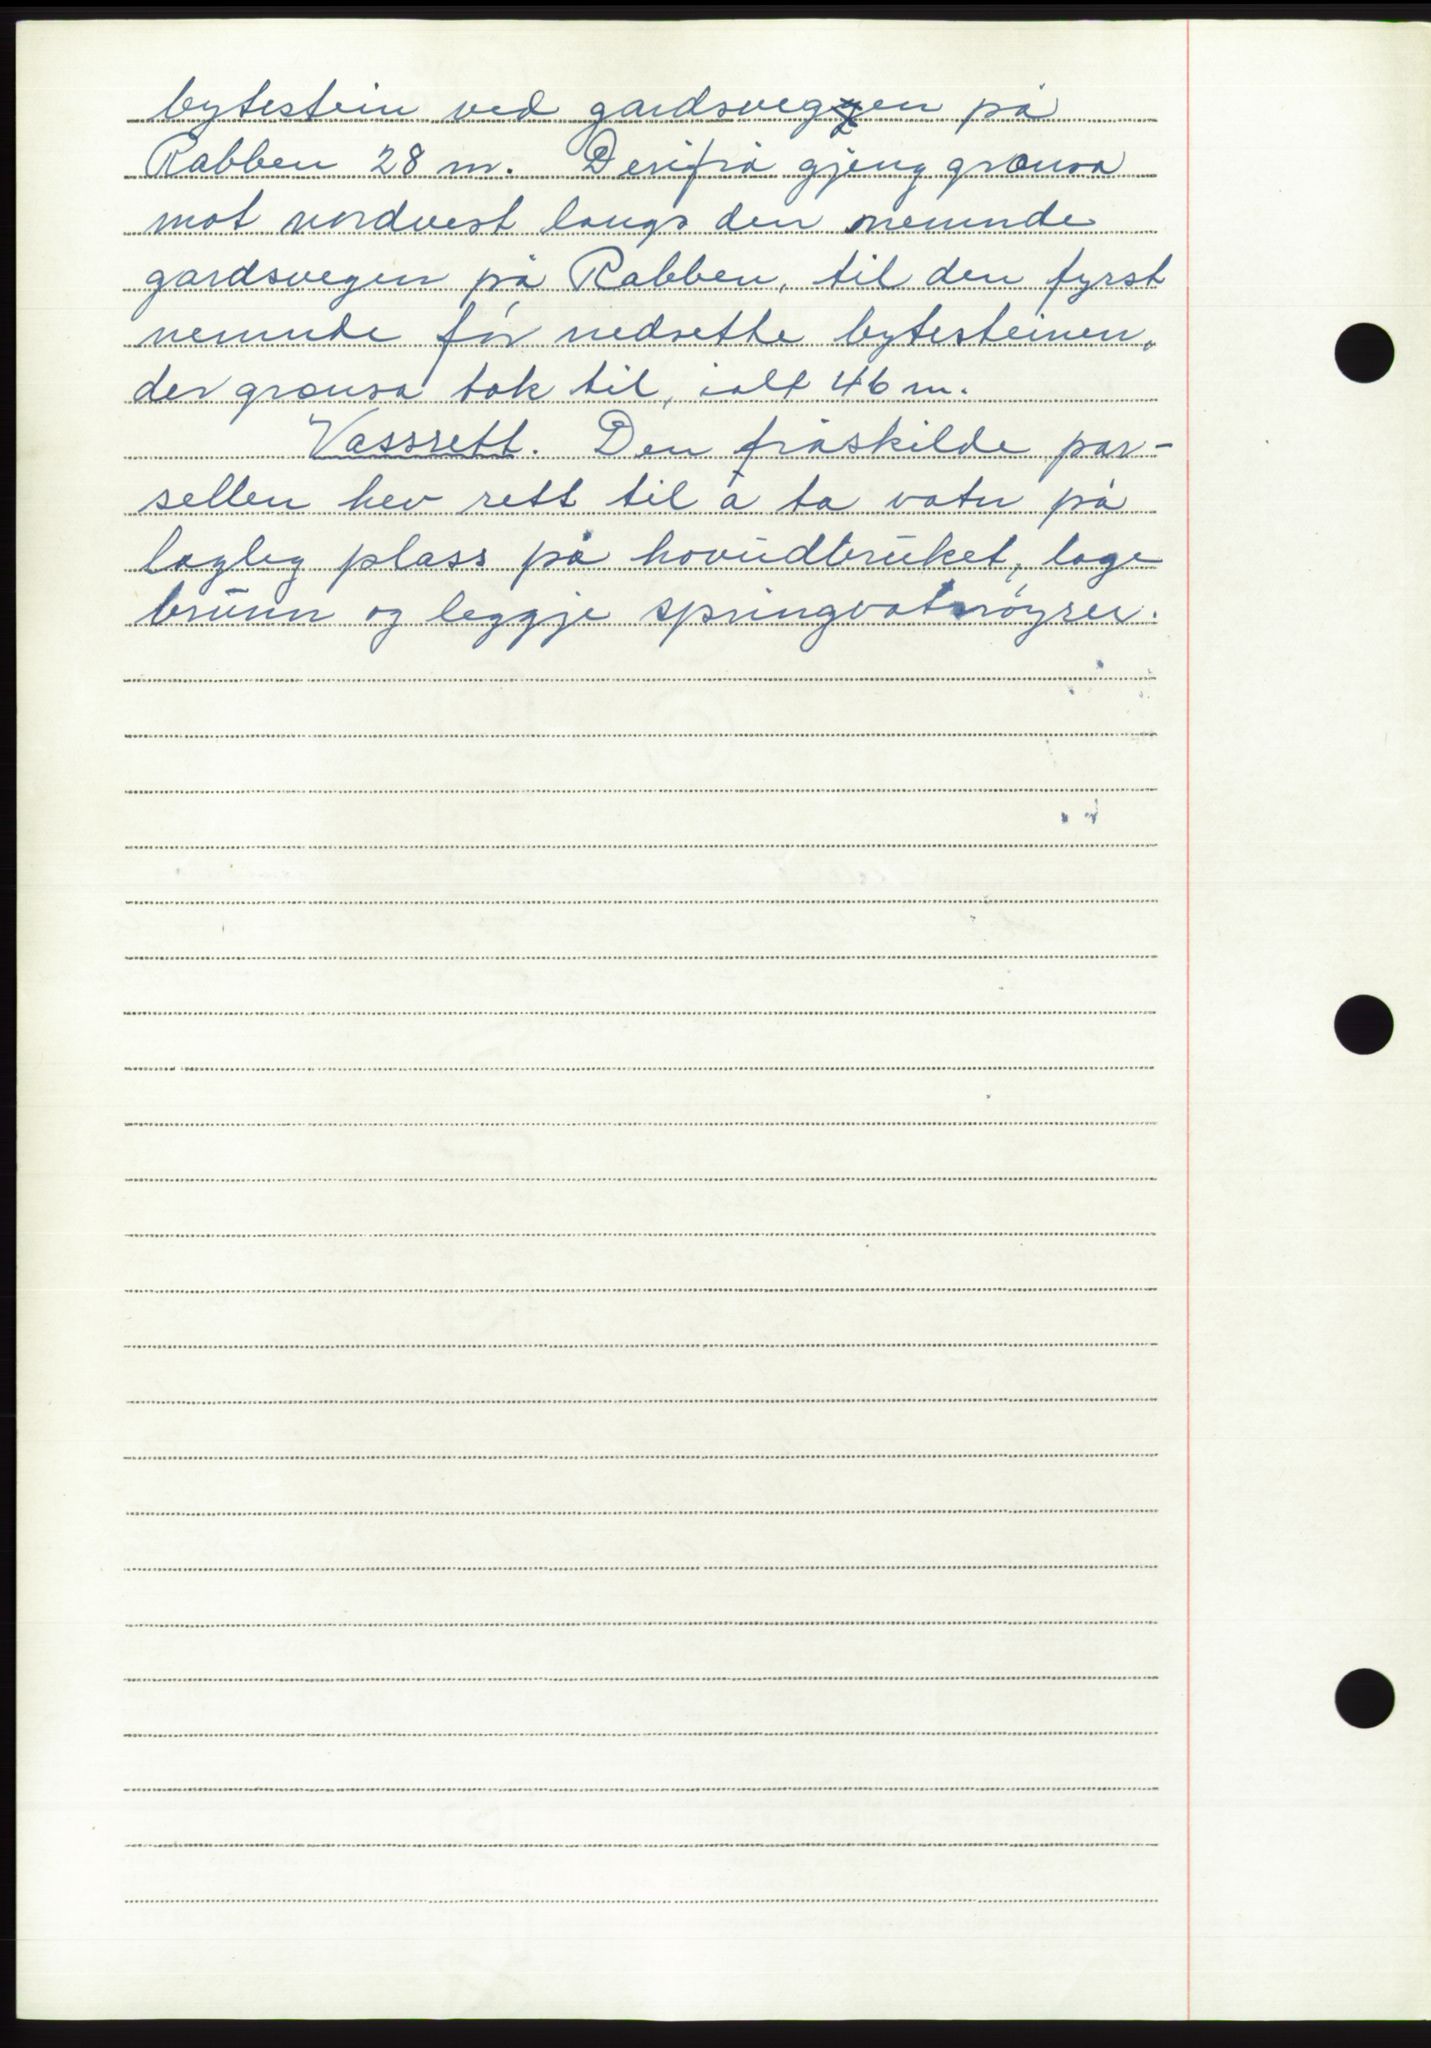 bytestein ved gardsvegen på
Rabben 28 m. Derifrå gjeng grensa
mot nordvest langs den nemnde
gardsvegen på Rabben, til den fyrst
nemnde før nedsette bytesteinen,
der grensa tok til, ialt 46 m.
Vassrett. Den fråskilde par-
sellen hev rett til å ta vatn på
lagleg plass på hovudbruket, lage
brunn og leggje springvatsrøyrer.